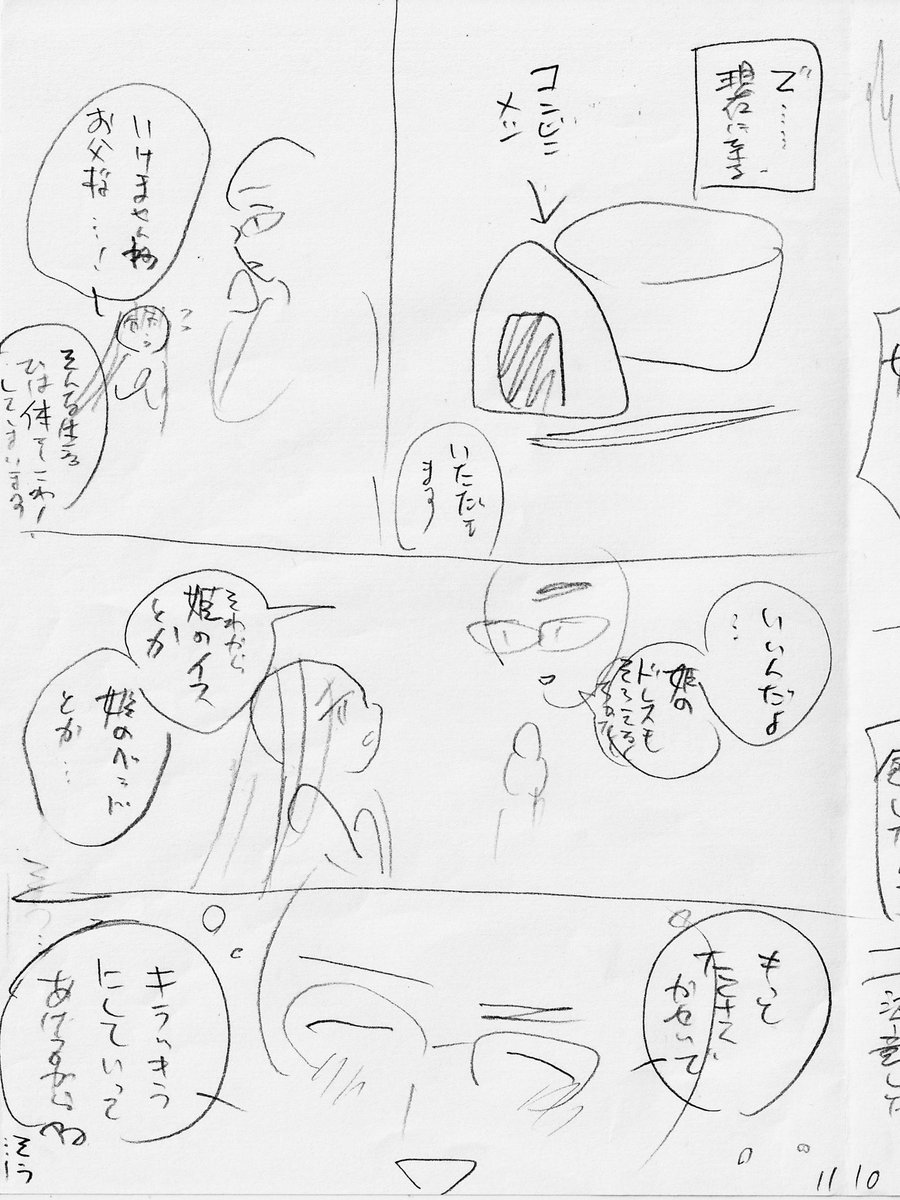 で……
現在に至る
コンビニ
メシ
いただき
ます
いけませんね
お父様…！
そんな生活
では体をこわ！
してしまいます
いいんだよ
…
姫の
ドレスも
そろってる
それから
姫のイス
とか
姫のベッド
とか…
もっと
たくさん
かせいで
キラッキラ
にしていって
あげるからね
11 10